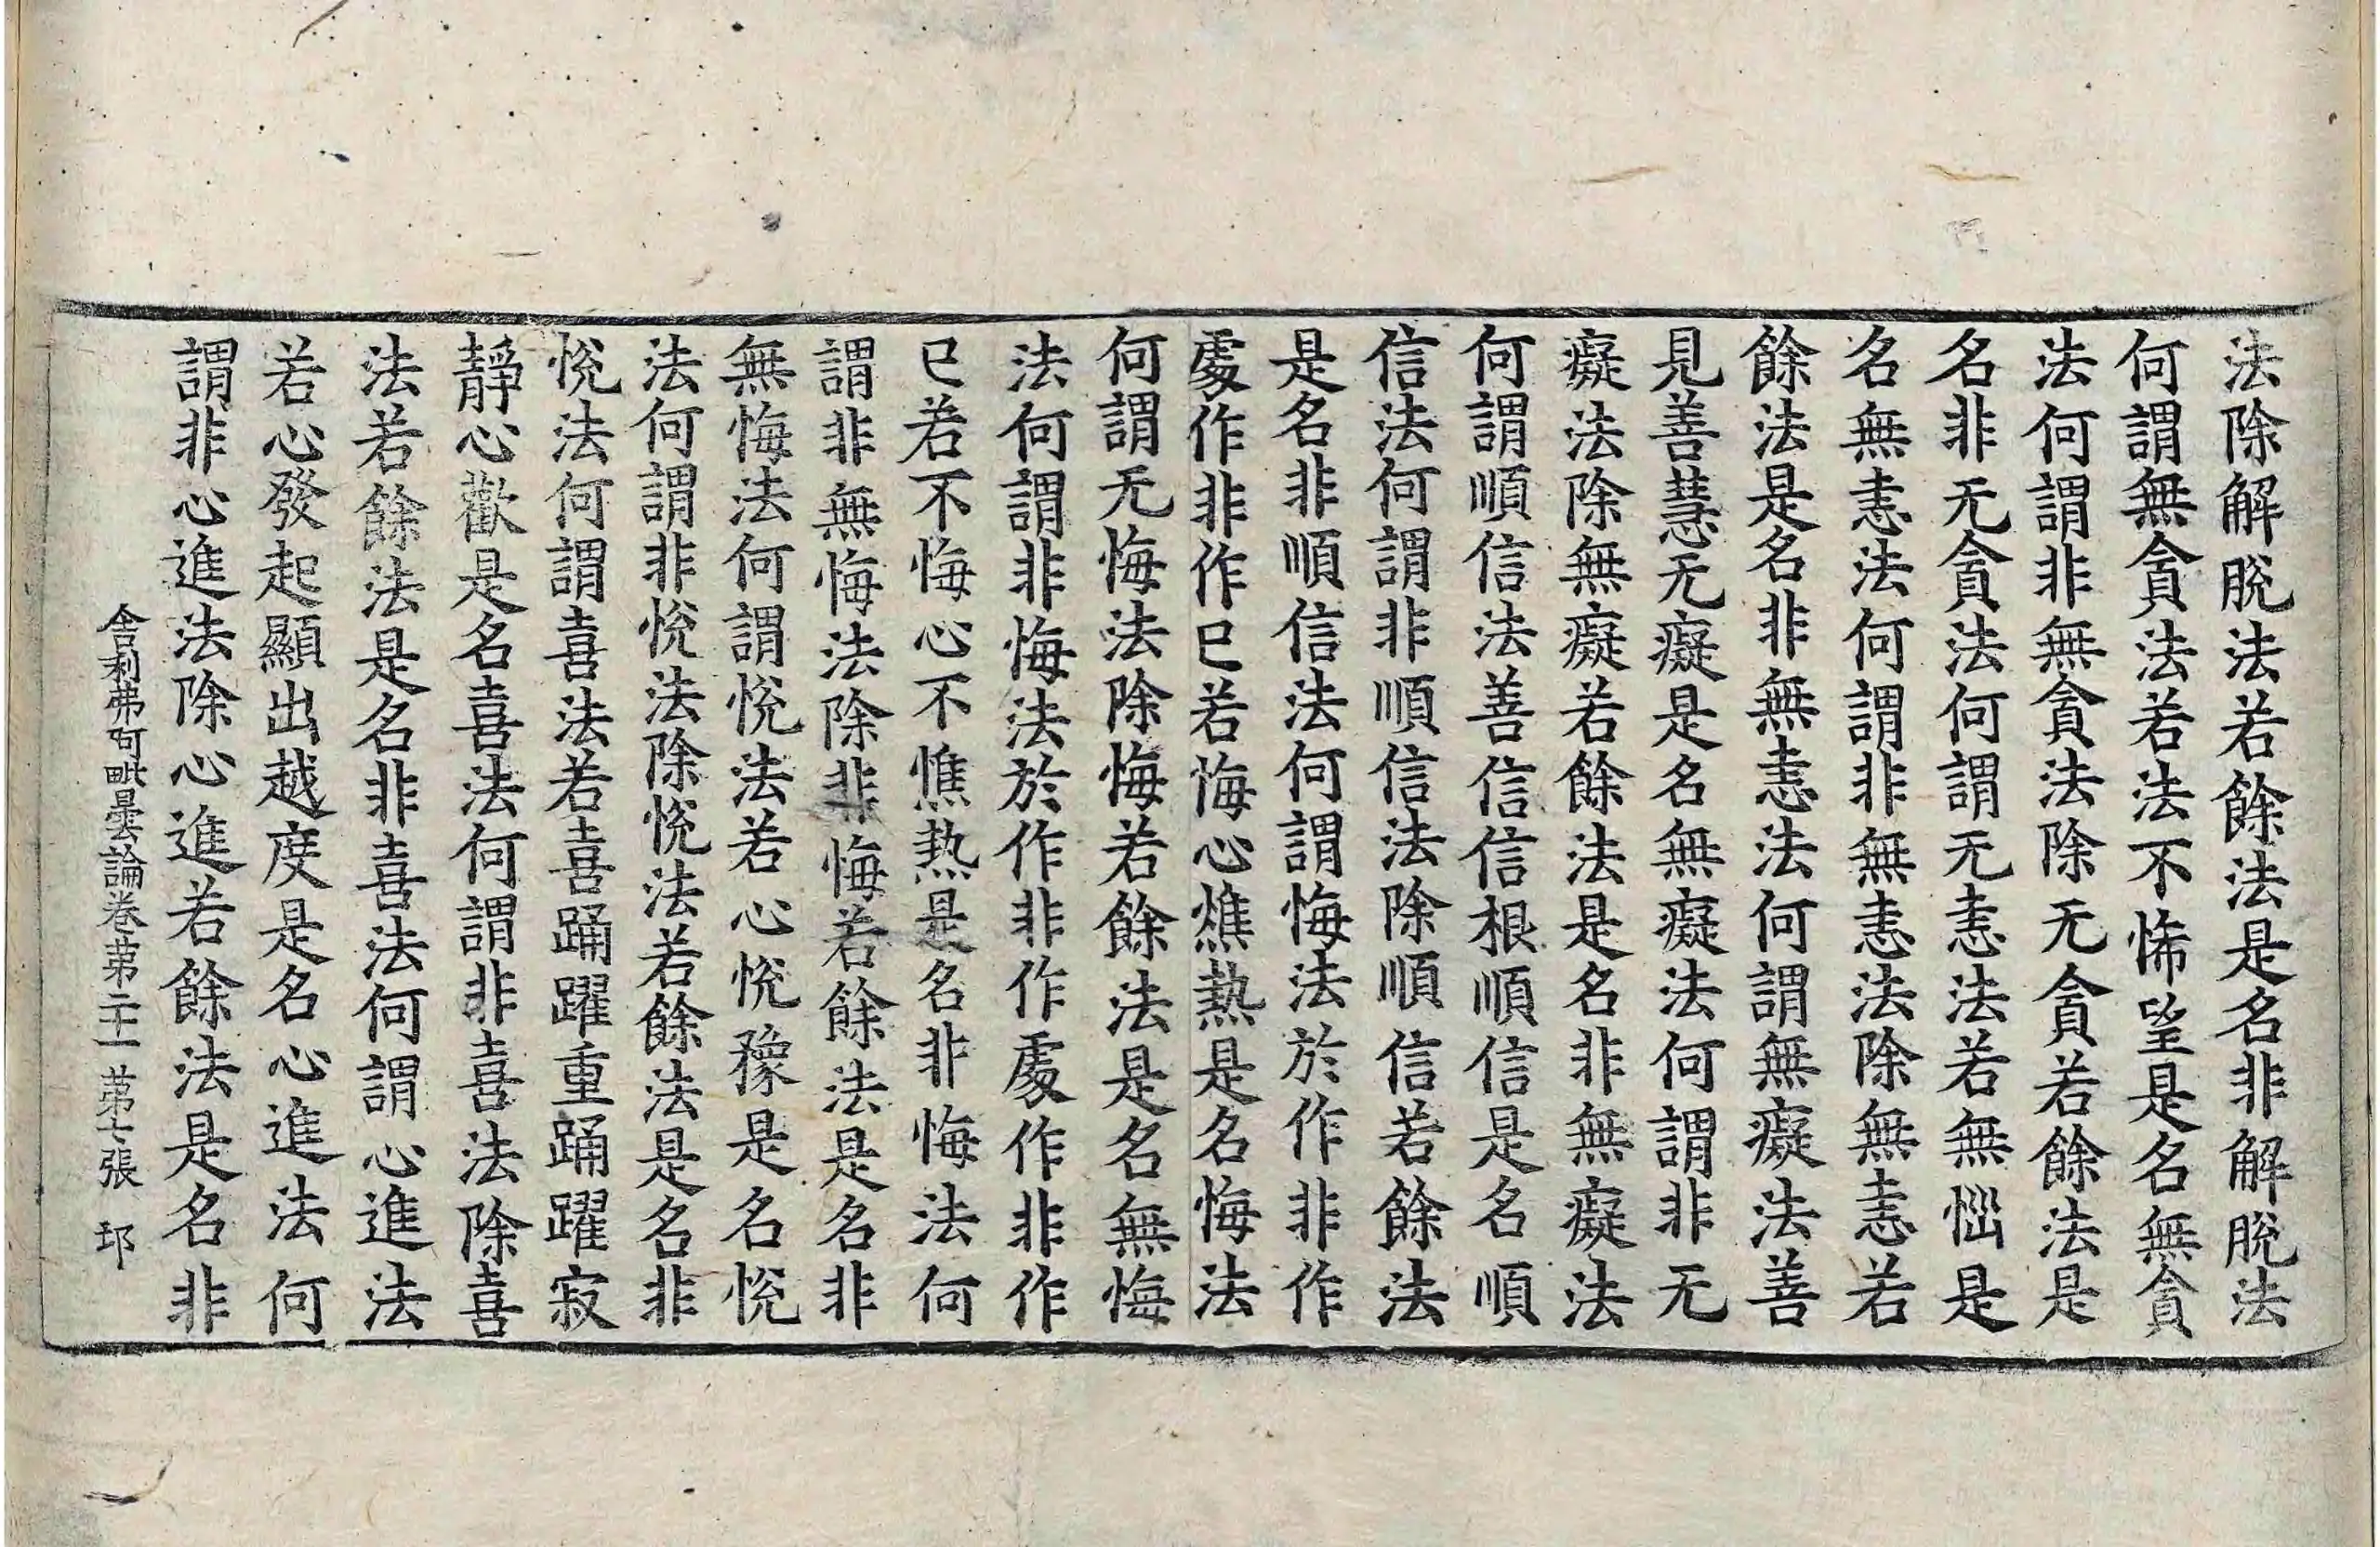 法除解脫法若餘法是名非解脫法
何謂無貪法若法不悕望是名無貪
法何謂非無貪法除无貪若餘法是
名非无貪法何謂无恚法若無惱是
名無恚法何謂非無恚法除無恚若
餘法是名非無恚法何謂無癡法善
見善慧无癡是名無癡法何謂非无
癡法除無癡若餘法是名非無癡法
何謂順信法善信信根順信是名順
信法何謂非順信法除順信若餘法
是名非順信法何謂悔法於作非作
處作非作已若悔心燋熱是名悔法
何謂无悔法除悔若餘法是名無悔
法何謂非悔法於作非作處作非作
已若不悔心不憔热是名非悔法何
謂非無悔法除非悔若餘法是名非
無悔法何謂悅法若心悅豫是名悅
法何謂非悅法除悅法若餘法是名非
悅法何謂喜法若喜踊躍重踊躍寂
靜心歡是名喜法何謂非喜法除喜
法若餘法是名非喜法何謂心進法
若心發起顯出越度是名心進法何
謂非心進法除心進若餘法是名非
舍利弗阿毗曇論卷第二十一 第七張 邛